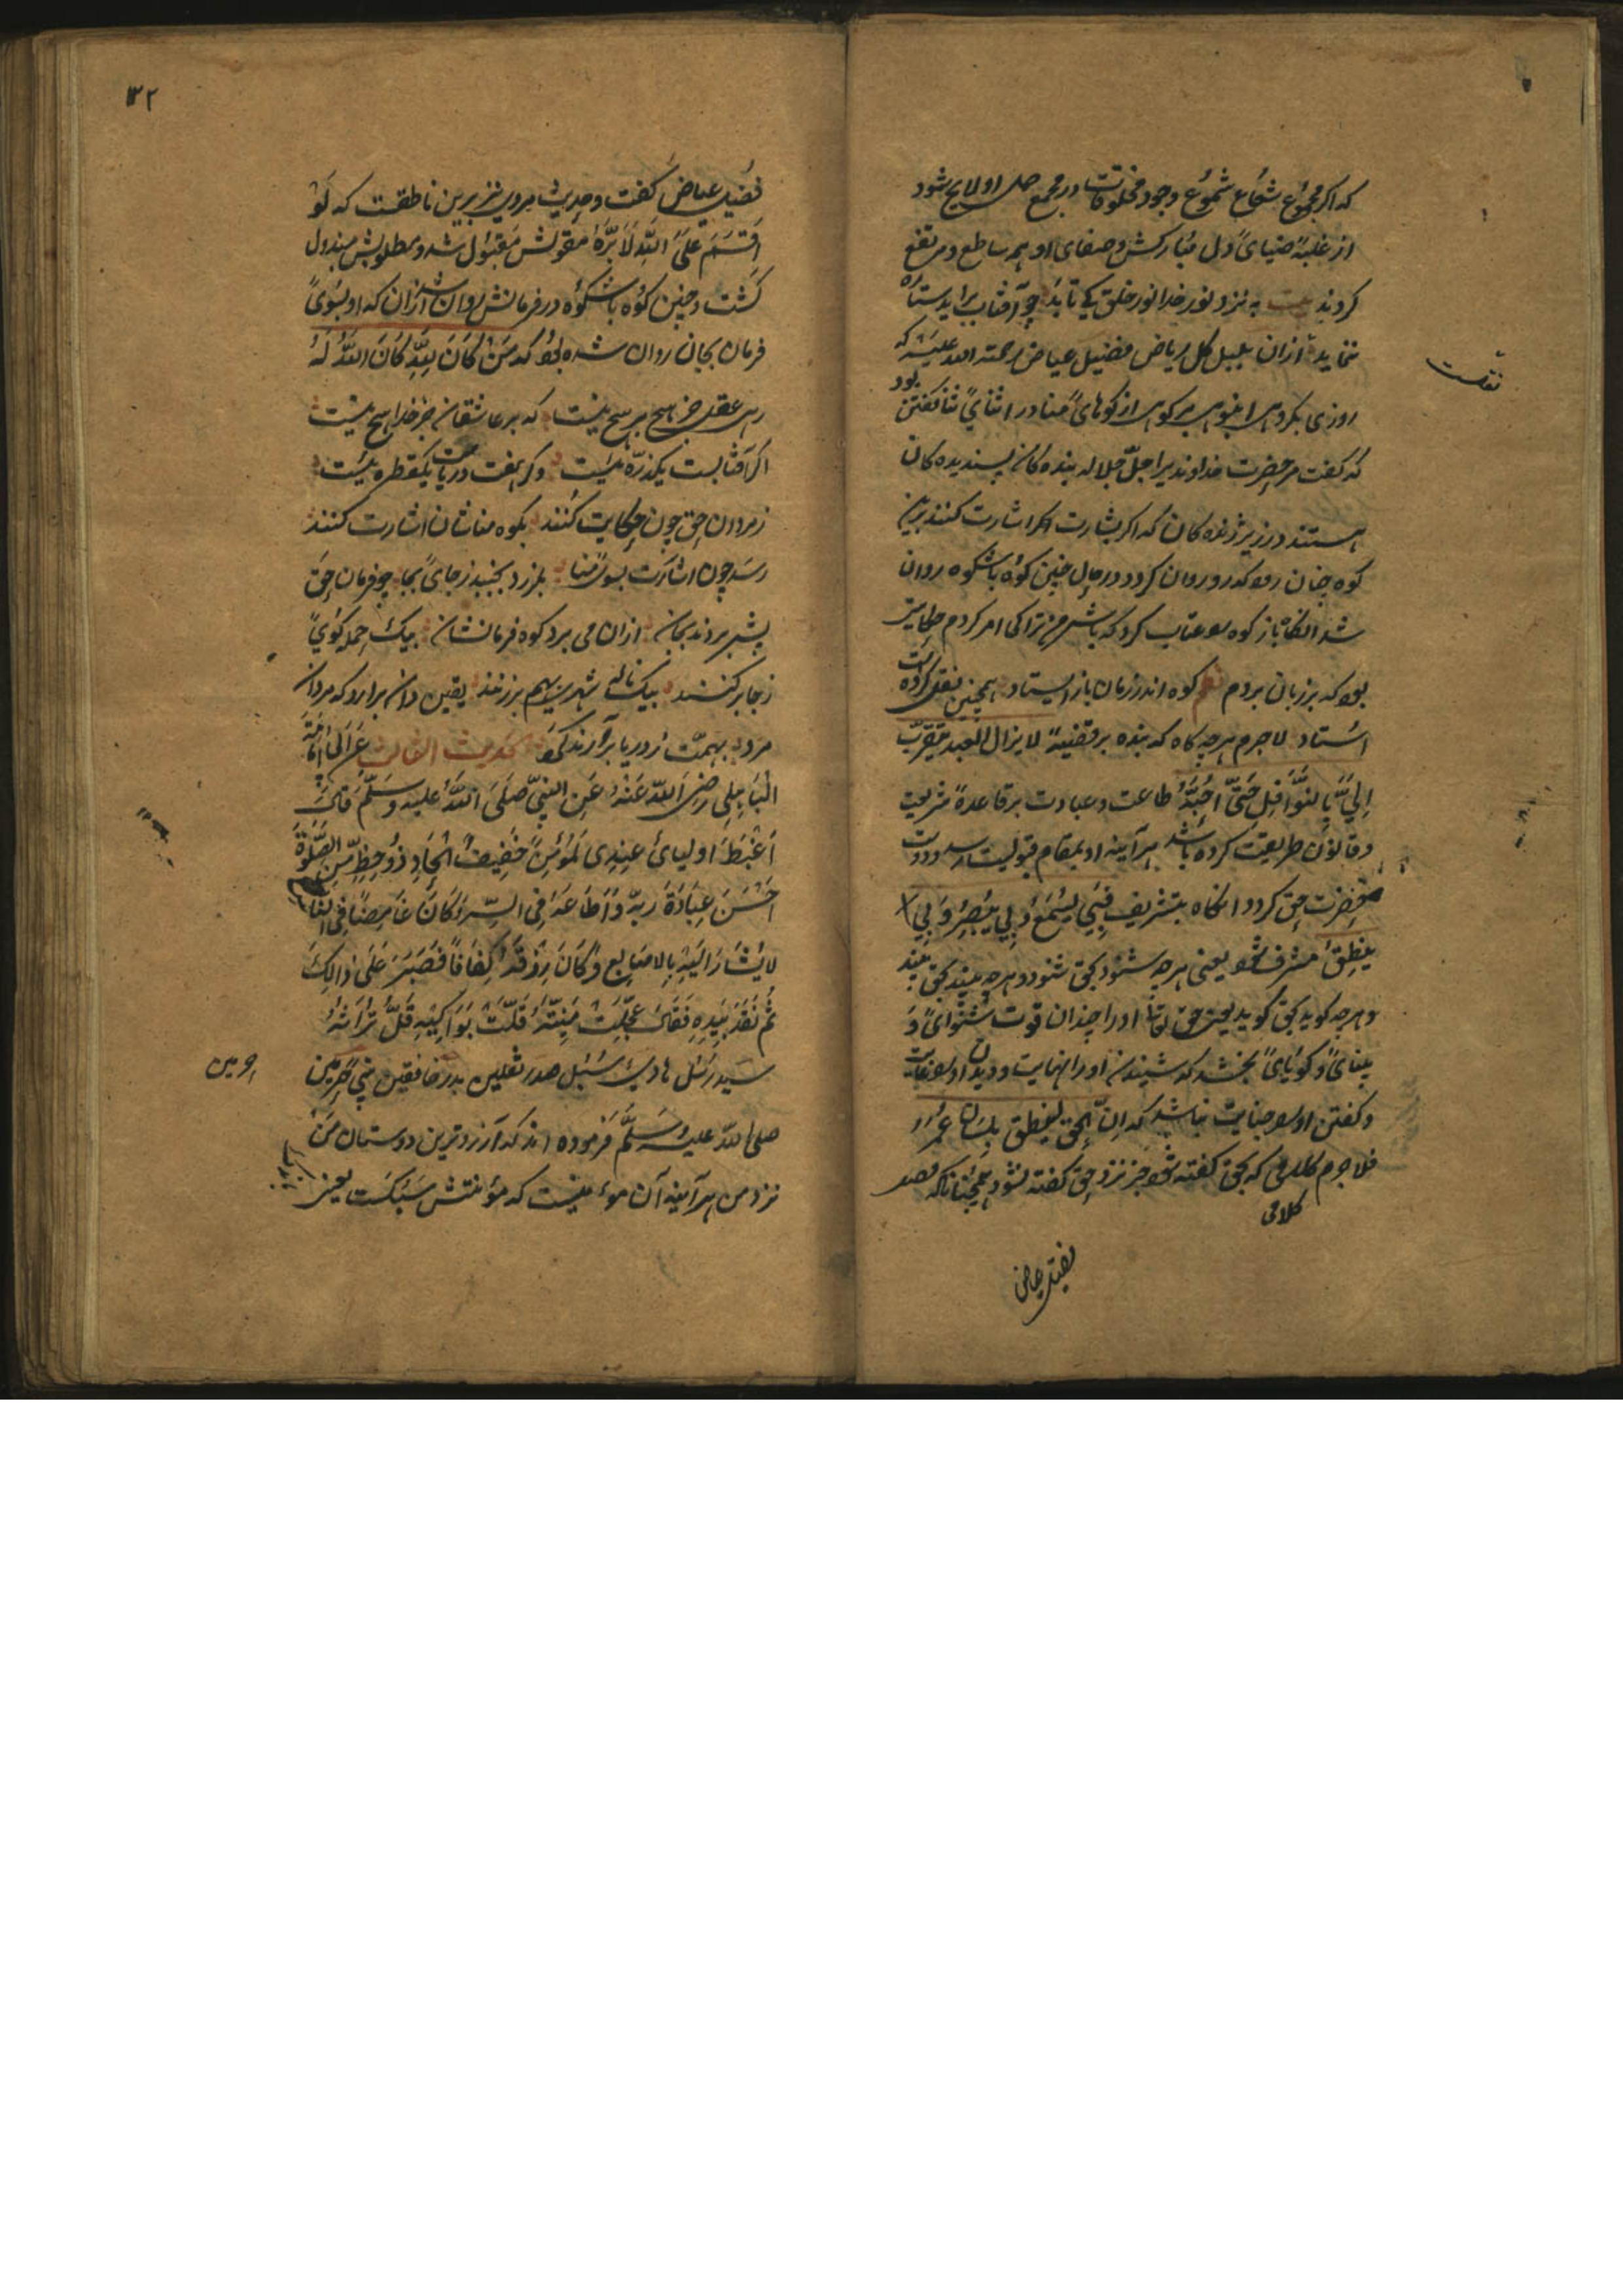 که اگر مجموع شعاع شموع وجود مخلوقات در مجمع اولایح شود
از غلبهٔ ضیای دل مبارکش و صفای او هم ساطع و مرتفع
کردند بیت به نزد نور خدا نور خلق کی تابد چو آفتاب برآید ستاره
ننماید ازان بلبل گل ریاض فضیل عیاض رحمته الله علیه که
نقلست
روزی بر کوهی از کوهای منا در اثنای ثنا گفتن بود
که گفت مر حضرت خداوندیرا جلّ جلاله بنده کان پسندیده کان
هستند در زیر ژنده کان که اگر بشارت اگر اشارت کنند برین
کوه چنان رود که رو روان گردد در حال چنین کوه باشکوه روان
شد انگاه باز کوه عتاب کرد که باش من ترا کی امر کردم حکایتی
بود که بر زبان بردم کوه اندر زمان باز ایستاد همچنین نقل کرده است
استاد لاجرم هرچه گاه که بنده بر قضیهٔ لا یزال العبد یتقرّب
اِلیَّ بِالنَّوَافِلِ حَتّیَ اُحِبَّهُ طاعت و عبادت بر قاعدهٔ شریعت
و قانون طریقت کرده باشد هر آینه او بمقام قبولیت رسد و دوست
حضرت حق گردد انگاه بتشریف فَبِی یَسْمَعُ وَبِی یُبْصِرُ وَبِی
یَنْطِقُ مشرف شود یعنی هرچه شنود بحق شنود و هرچه بیند بحق بیند
و هرچه گوید بحق گوید یعنی حق تعالی او را چندان قوت شنوای و
بینای و گویای بخشد که شنیدن او را نهایت و دیدن او را غایت
و گفتن او نباشد که اِنَّ الحق لینطق بلسان عمر
فلاجرم کلامی که بحق گفته شود جز نزد حق گفته نشود همچنانکه قصد
کلامی
فضیل عیاض
۳۲
فضیل عیاض گفت و حدیث مروی نیز برین ناطقست که لَوْ
اَقْسَمَ عَلَی اللّٰهِ لَاَبَرَّهُ مقولش مقبول شد و مطلوبش مبذول
گشت و چنین کوه باشکوه در فرمانش روان شد ازان که او بسوی
فرمان بجان روان شده بود که مَنْ کَانَ لِلّٰهِ کَانَ اللّٰهُ لَهُ
ره عقل جز پیچ بر پیچ نیست که بر عاشقان جز خدا هیچ نیست
اگر آفتابست یکذرّه نیست وگر هفت دریاست یکقطره نیست
ز مردان حق چون حکایت کنند بکوه منا شان اشارت کنند
رسد چون اشارت بسوی منا بلرزد بجنبد ز جای بجا چو فرمان حق
پیش بردند بجان ازان می برد کوه فرمانشان بیک حمله کوی
ز جا بر کنند بیک ناله شهری بهم بر زنند یقین دان برآرد که مردان
مرد بهمت ز دریا برآرند گرد حدیث الثالث عَنْ اَبی اُمَامَةَ
الْبَاهِلی رَضِیَ اللّٰهُ عَنْهُ عَنِ النَّبِیِّ صَلَّی اللّٰهُ عَلَیْهِ وَسَلَّمَ قَالَ
اَغْبَطُ اولیائی عِنْدِی لَمُؤْمِنٌ خَفِیفُ الْحَاذِ ذُو حَظٍّ مِنَ الصَّلٰوةِ
اَحْسَنَ عِبَادَةَ رَبِّهِ وَاَطَاعَهُ فِی السِّرِّ وَکَانَ غَامِضًا فِی النَّاسِ
لا یُشَارُ اِلَیْهِ بِالاصَابِعِ وَکَانَ رِزْقُهُ کِفَافًا فَصَبَرَ عَلَی ذَالِکَ
ثُمَّ نَقَدَ بِیَدِهِ فَقَالَ عُجِّلَتْ مَنِیَّتُهُ قَلَّتْ بَوَاکِیْهِ قَلَّ تُرَاثُهُ
سید رسل هادی سبل صدر ثقلین بدر خافقین نبی حرمین
صلی الله علیه وسلم فرموده اند که آرزوترین دوستان من
نزد من هر آینه آن مؤمنیست که مؤنتش سبکست یعنی